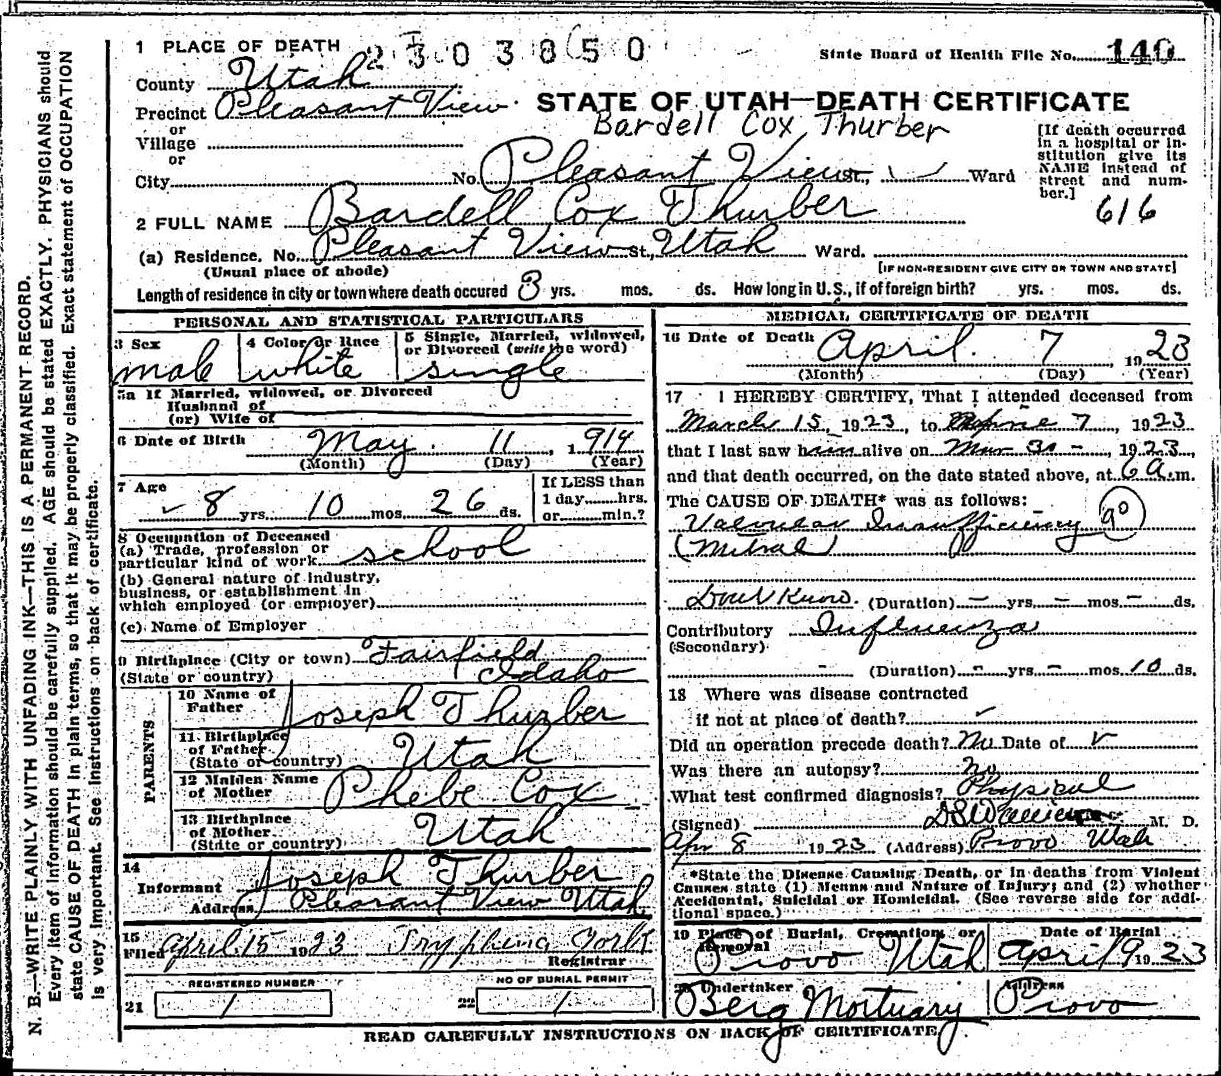 N. B.—WRITE PLAINLY WITH UNFADING INK—THIS IS A PERMANENT RECORD.
Every item of information should be carefully supplied. AGE should be stated EXACTLY. PHYSICIANS should
state CAUSE OF DEATH in plain terms, so that it may be properly classified. Exact statement of OCCUPATION
is very important. See instructions on back of certificate.
1 PLACE OF DEATH 2303850
State Board of Health File No. 140
County Utah
Precinct Pleasant View
STATE OF UTAH—DEATH CERTIFICATE
or
Village
or
Bardell Cox Thurber
City No. Pleasant View St., Ward
[If death occurred
in a hospital or in-
stitution give its
NAME instead of
street and num-
ber.]
616
2 FULL NAME Bardell Cox Thurber
(a) Residence. No. Pleasant View St., Utah Ward.
(Usual place of abode)
[IF NON-RESIDENT GIVE CITY OR TOWN AND STATE]
Length of residence in city or town where death occured 3 yrs. mos. ds. How long in U.S., if of foreign birth? yrs. mos. ds.
PERSONAL AND STATISTICAL PARTICULARS
3 Sex
male
4 Color or Race
white
5 Single, Married, widowed,
or Divorced (write the word)
single
5a If Married, widowed, or Divorced
Husband of
(or) Wife of
6 Date of Birth May 11, 1914
(Month) (Day) (Year)
7 Age
8 yrs. 10 mos. 26 ds.
If LESS than
1 day hrs.
or min.?
8 Occupation of Deceased
(a) Trade, profession or
particular kind of work school
(b) General nature of industry,
business, or establishment in
which employed (or employer)
(c) Name of Employer
9 Birthplace (City or town) Fairfield
(State or country) Idaho
PARENTS
10 Name of
Father Joseph Thurber
11 Birthplace
of Father
(State or country) Utah
12 Maiden Name
of Mother Phebe Cox
13 Birthplace
of Mother
(State or country) Utah
14
Informant Joseph Thurber
Address Pleasant View Utah
15
Filed April 15 1923 Tryphena York
Registrar
REGISTERED NUMBER
21 1
NO OF BURIAL PERMIT
22 1
MEDICAL CERTIFICATE OF DEATH
16 Date of Death April 7 1923
(Month) (Day) (Year)
17 I HEREBY CERTIFY, That I attended deceased from
March 15, 1923, to 7, 1923
that I last saw him alive on Mar 31 - 1923,
and that death occurred, on the date stated above, at 6 a.m.
The CAUSE OF DEATH* was as follows:
Valvular Insufficiency 90
(Mitral)
Dont Know (Duration) — yrs. — mos. — ds.
Contributory Influenza
(Secondary)
(Duration) — yrs. — mos. 10 ds.
18 Where was disease contracted
if not at place of death?
Did an operation precede death? No Date of
Was there an autopsy? no
What test confirmed diagnosis? Physical
(Signed) M. D.
Apr 8 1923 (Address) Provo Utah
*State the Disease Causing Death, or in deaths from Violent
Causes state (1) Means and Nature of Injury; and (2) whether
Accidental, Suicidal or Homicidal. (See reverse side for addi-
tional space.)
19 Place of Burial, Cremation, or
Removal
Provo Utah
Date of Burial
April 9 1923
20 Undertaker
Berg Mortuary
Address
Provo
READ CAREFULLY INSTRUCTIONS ON BACK OF CERTIFICATE